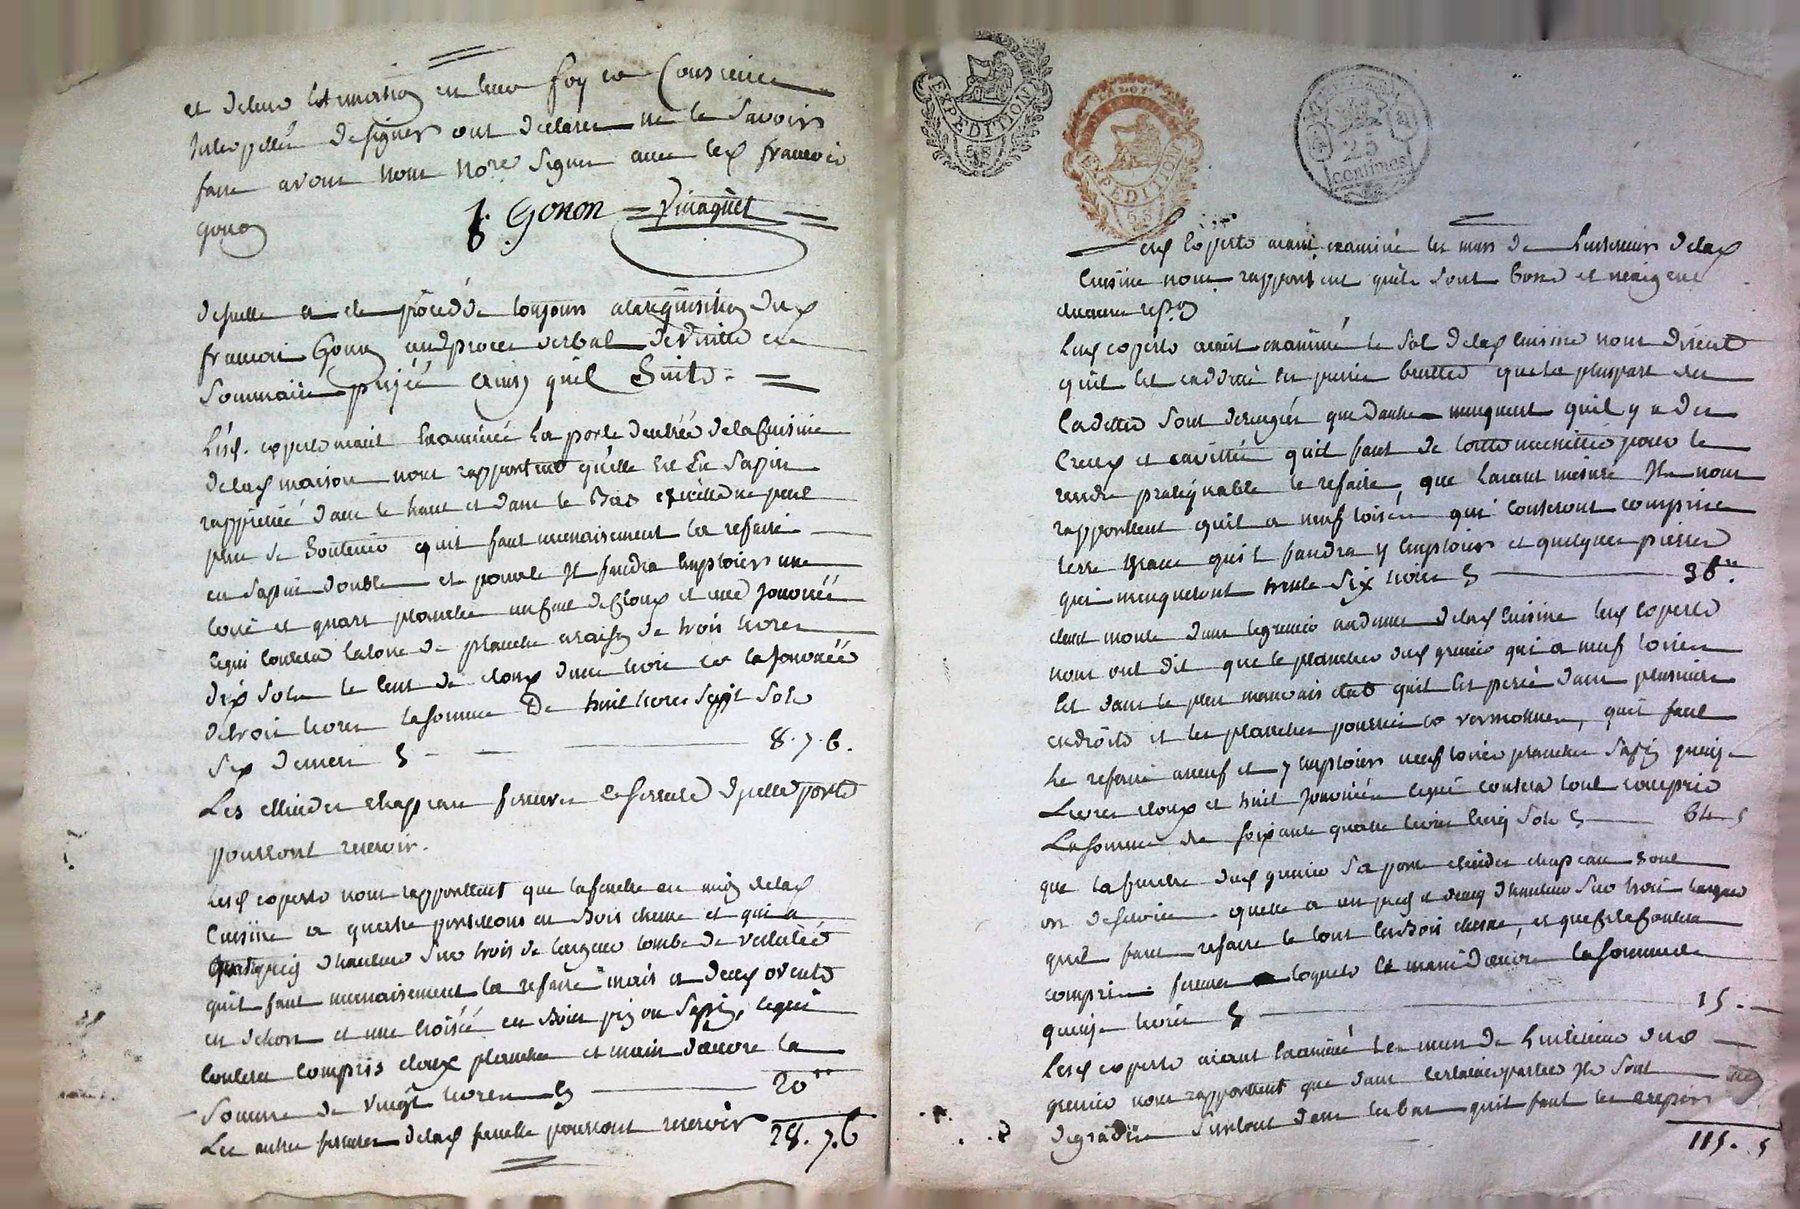 et de leur Estimation en leur foy et Conscience
Interpellés de signer ont déclarer ne le Savoir
faire avons nous No.re Signer avec led françois
gonon
f. Gonon Vinaquet
de suelle a ete procédé toujours a la requisition dud
francois Gonon audproces verbal de Visitte et
Sommaire prisée Ainsy quil Suit.
Lesd. experts aiant Examinée la porte dentrée de la Cuisine
de lad maison nous rapportent quelle Est En Sapin
rappiecée dans le haut et dans le Bas et quelle ne peut
plus se Soutenir quil faut necessairement la refaire
en Sapin double et pour ce Il faudra Emploier une
toise et quart planche un Cent de Cloux et une Journée
Cequi Coutera la toise de planche a raison de trois livres
dix Sols le Cent de cloux dune livre et la Journéé
de trois livres la somme De huit livres Sept Sols
Six deniers 8. 7. 6.
Les chapeau ferrures & serrure dycelle porte
pourront reservir.
Lesd experts nous rapportent que la fenetre en midy de lad
Cuisine a quatre postillons en Bois chene et qui a
d'hauteur sur trois de largeur tombe de vetusté
quil faut necessairement la refaire mais a deux
en dehors et une Croiseé en Bois pin ou Sapin, Cequi
Coutera Compris cloux planches et main dœuvre la
Somme de Vingt livres 20
Les autres ferrures de lad fenetre pourront reservir 28. 7. 6
Lesd Experts aiant examiné les murs de Linterieur de lad
Cuisine nous rapportent quils sont bons et nexigent
aucune rep.on
Lesd experts aiant examiné le Sol de lad Cuisine nous disent
quil Est cadetté En pierre brutte que la pluspart des
Cadettes sont derangées que dautres manquent quil y a des
Creux et cavittés quil faut de toutte necessitté pour le
rendre pratiquable le refaire, que Laiant mesuré Ils nous
rapportent quil a neuf toises qui Couteront comprise
terre Grasse quil faudra y Emploier et quelques pierres
qui manqueront trente Six livres 36.
étant monté dans le grenier audessus de lad Cuisine lesd experts
nous ont dit que le plancher dud grenier qui a neuf toises
Est dans le plus mauvais etat quil Est percé dans plusieurs
endroits et les planches pourries et vermolues, quil faut
Le refaire aneuf et y Emploier neuf toises planches Sapin quinze
Livres cloux et huit Journées cequi coutera tout compris
La somme de soixante quatre livres Cinq Sols 64 5
que la fenetre dud grenier Sa porte chapeau sont
or deservice quelle a un pied et demy d'hauteur sur trois largeur
quil faut refaire le tout en Bois chesne, et que Cela Coutera
compris ferrures loquets et main dœuvre la somme de
quinze livres 15.
Lesd experts aiant Examiné les murs de Linterieur dud
grenier nous rapportent que dans certaines parties Ils sont
degradés surtout dans le bas quil faut les crepir
115. 5
EXPEDITION
EXPEDITION
25
centimes